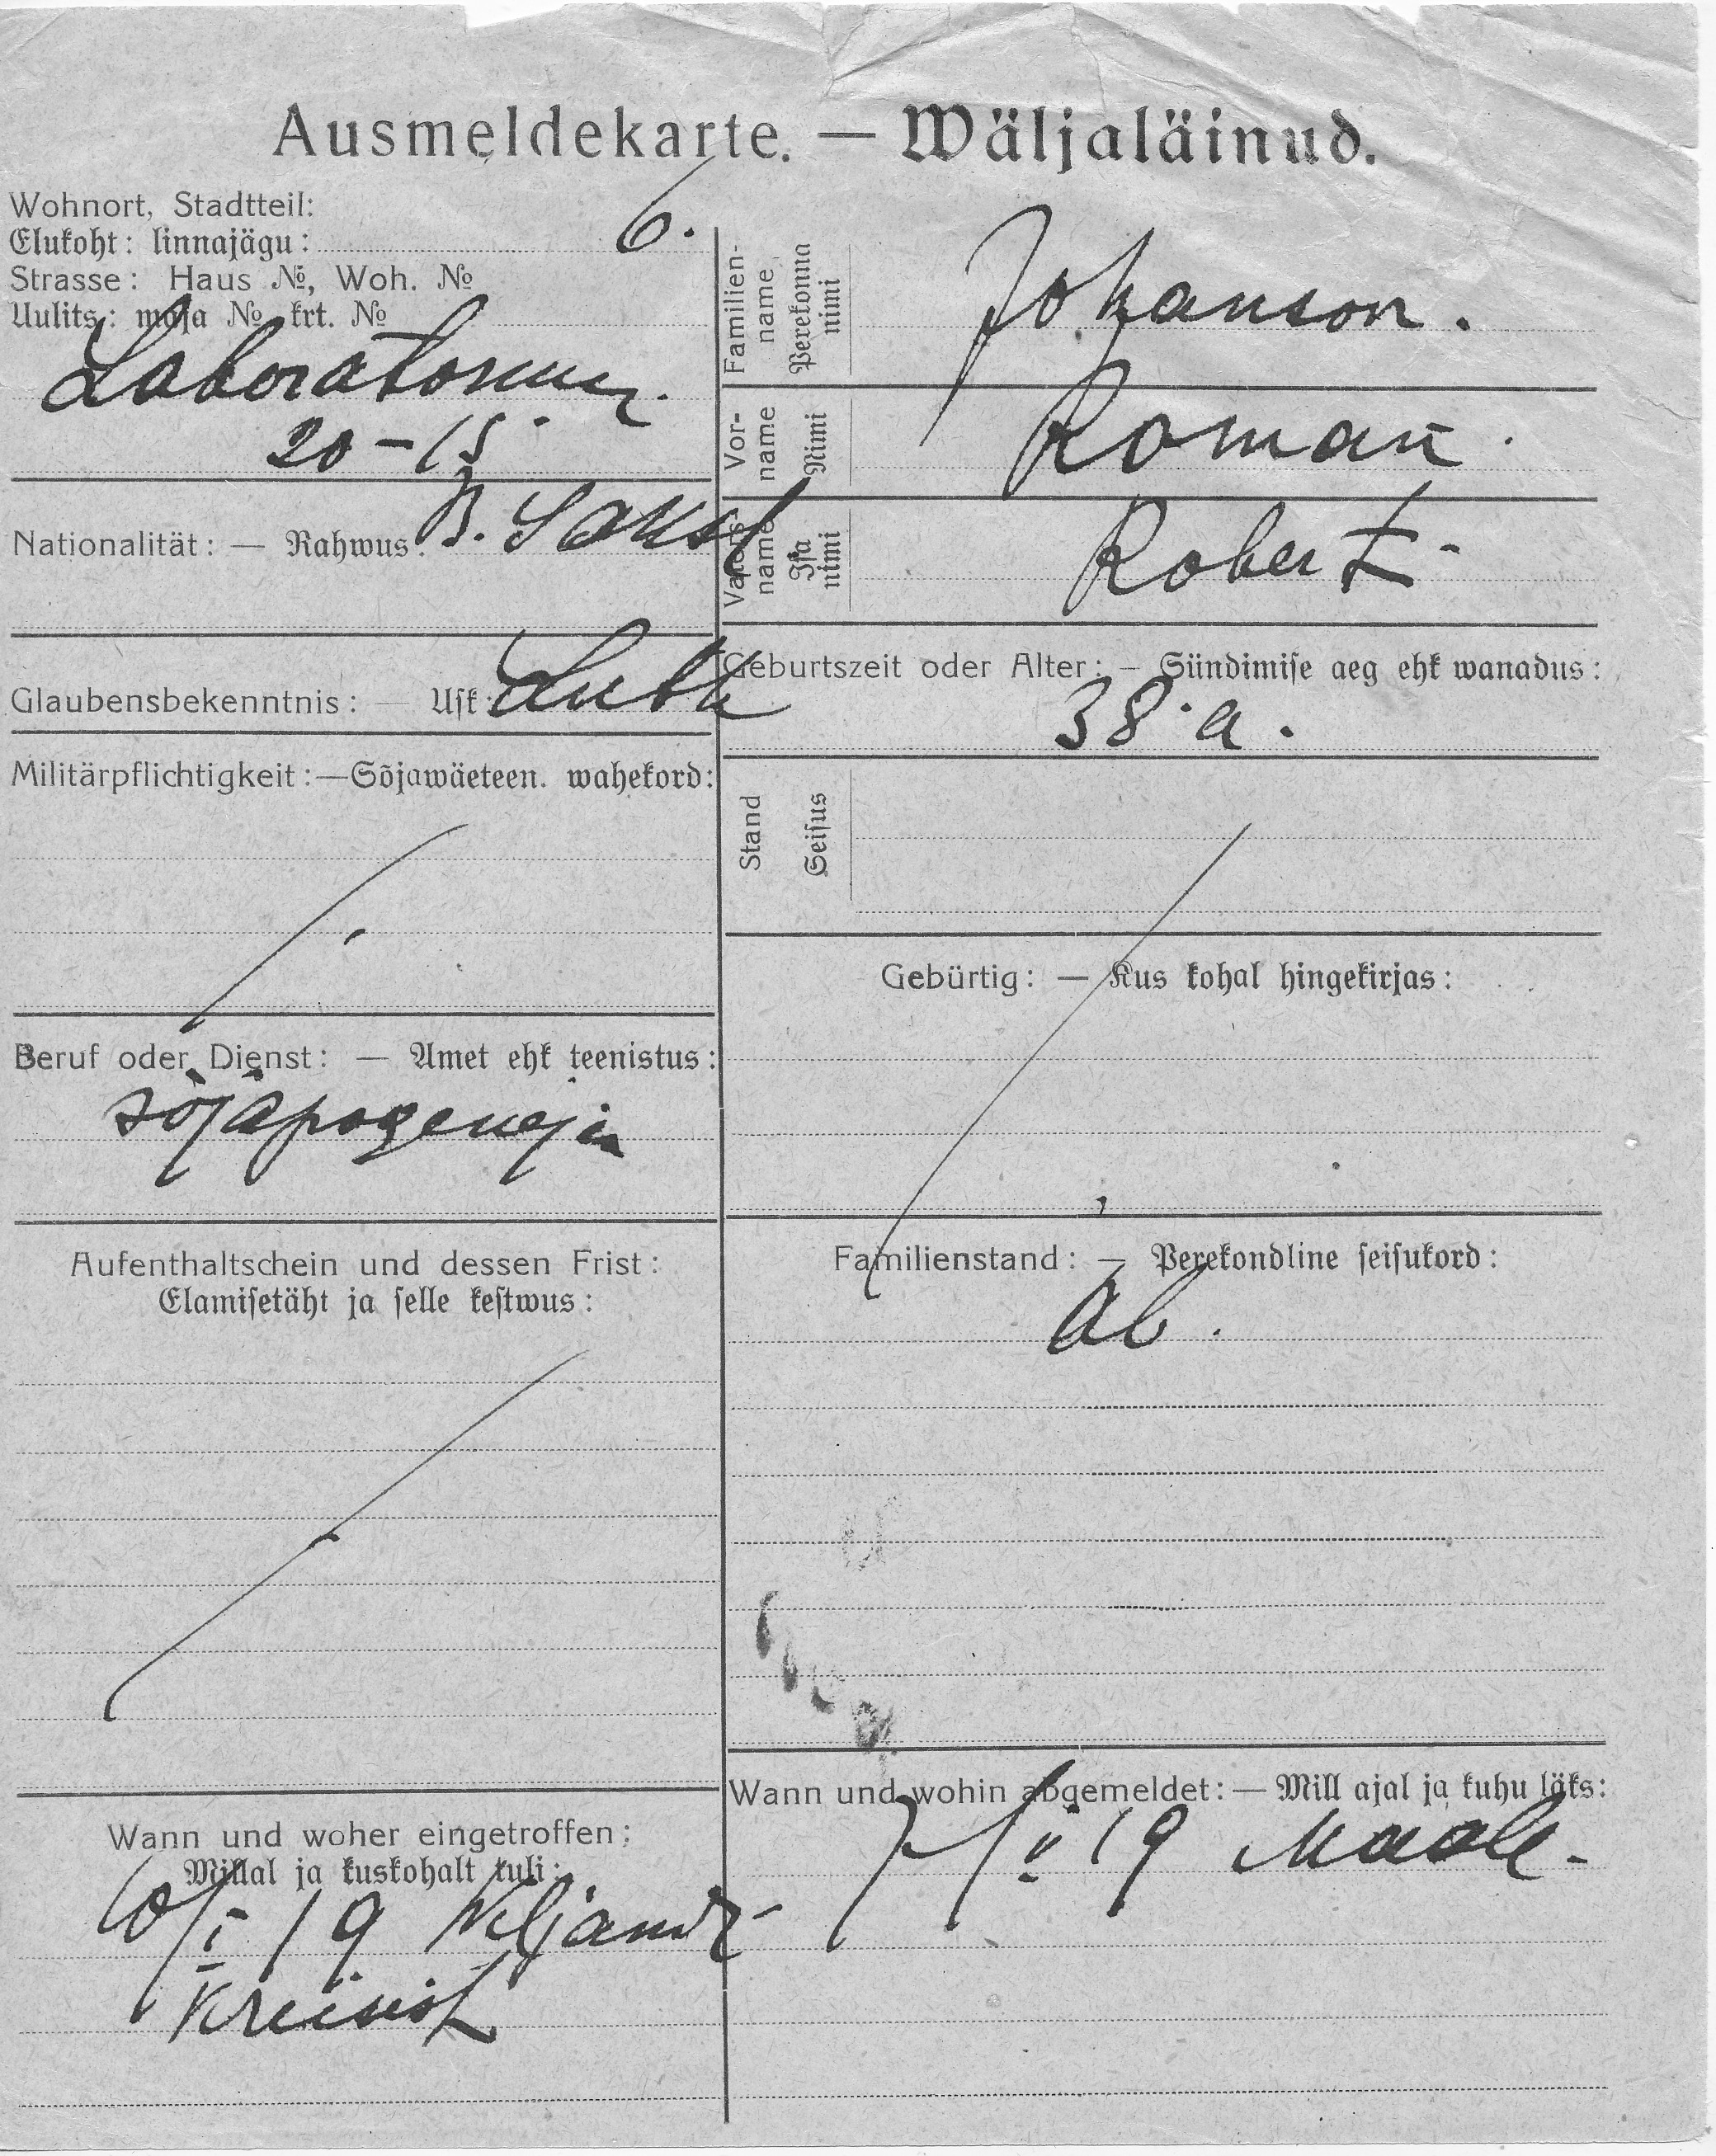 Ausmeldekarte. — Wäljaläinud.
Wohnort, Stadtteil:
Elukoht: linnajägu: 6.
Strasse: Haus №, Woh. №
Uulits: maja № krt. №
Laboratoriumi
20-15
Nationalität: — Rahwus:
Glaubensbekenntnis: — Usk: Luth
Militärpflichtigkeit: — Sõjawäeteen. wahekord:
Beruf oder Dienst: — Amet ehk teenistus:
sõjapogeneja
Aufenthaltschein und dessen Frist:
Elamisetäht ja selle kestwus:
Wann und woher eingetroffen:
Millal ja kuskohalt tuli:
10/I 19 Wiljandi
Kreisist
Familien-
name
Perekonna
nimi
Johanson.
Vor-
name
Nimi
Roman
Vaters
name
Isa
nimi
Robert
Geburtszeit oder Alter: — Sündimise aeg ehk wanadus:
38 a.
Stand
Seisus
Gebürtig: — Kus kohal hingekirjas:
Familienstand: — Perekondline seisukord:
Ab.
Wann und wohin abgemeldet: — Mill ajal ja kuhu läks:
19 Maale